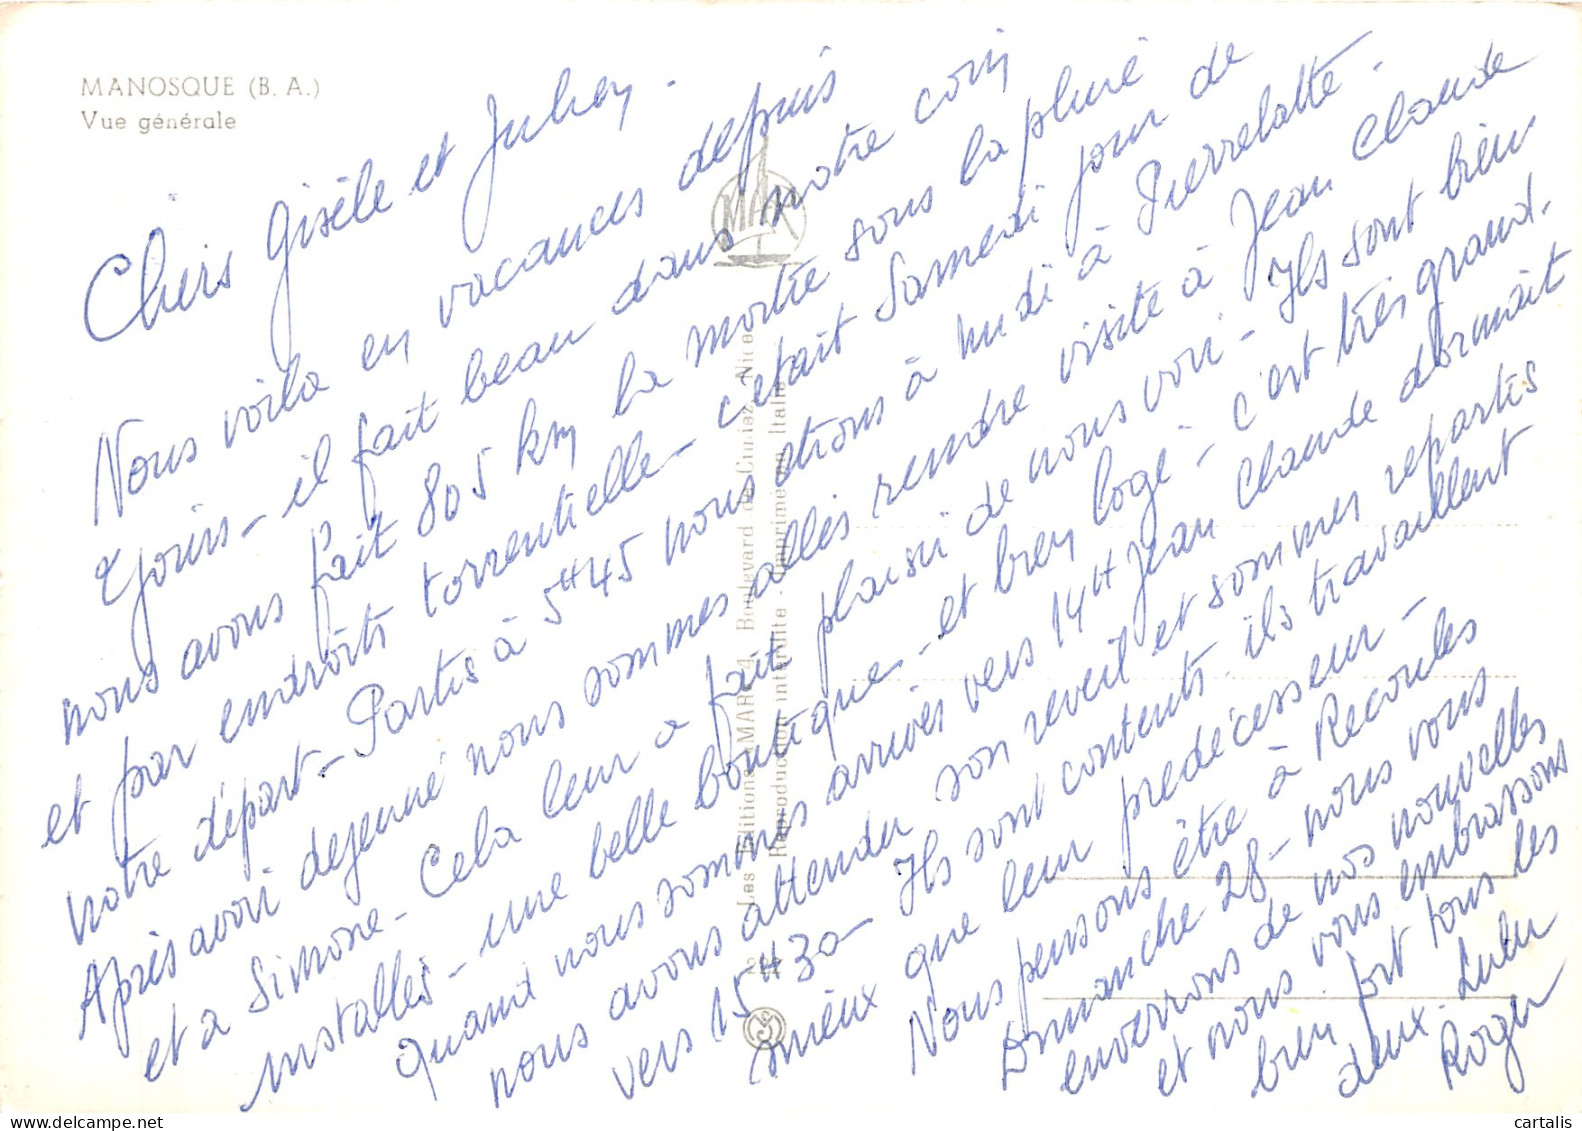 MANOSQUE (B. A.)
Vue générale
Chers Gisèle et Julien.
Nous voila en vacances depuis
jours - il fait beau dans notre coin
nous avons fait 805 km la moitié sous la pluie
et par endroits torrentielle - c'était Samedi jour de
notre départ - Partis à 5H45 nous étions à midi à Pierrelatte.
Après avoir dejeuné nous sommes allés rendre visite à Jean Claude
et a Simone - Cela leur a fait plaisir de nous voir - Ils sont bien
installés - une belle boutique - et bien logé - c'est très grand.
Quand nous sommes arrivés vers 14H Jean Claude dormait
nous avons attendu son reveil et sommes repartis
vers 15H30 - Ils sont contents ils travaillent
mieux que leur predécesseur -
Nous pensons être à Recoules
Dimanche 28 - nous vous
enverrons de nos nouvelles
et nous vous embrassons
bien fort tous les
deux. Lulu
Roger
MAR
Les Editions "MAR" 4, Boulevard de Cimiez, Nice
Reproduction interdite - Imprimé en Italie
cartalis